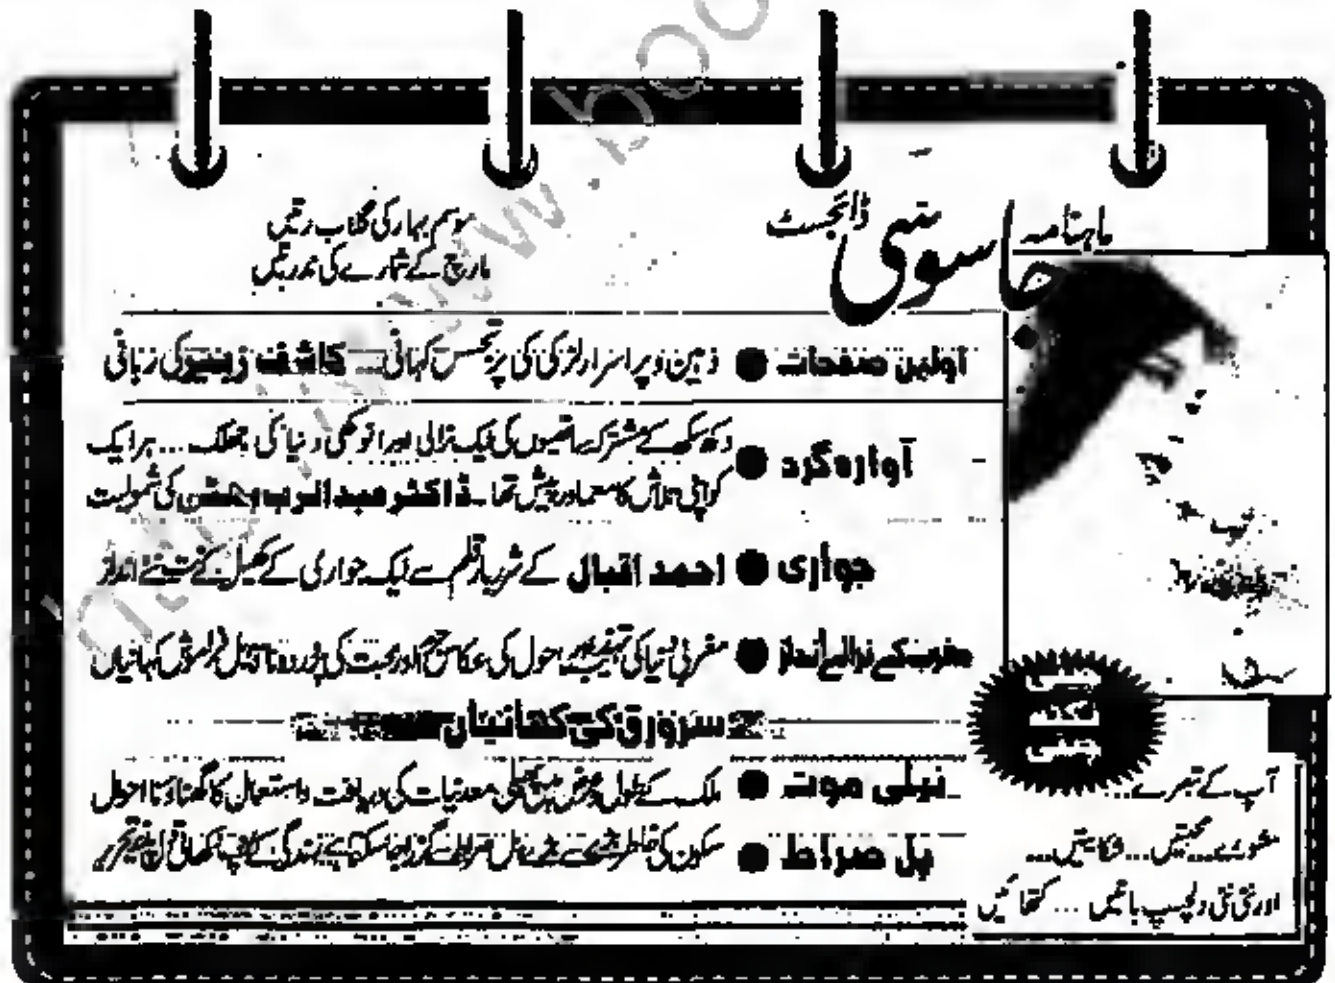 ماہنامہ جاسوسی ڈائجسٹ
موسم بہار کی گلاب رتیں
مارچ کے شمارے کی ندرتیں
اولین صفحات ● ذہین و پراسرار لڑکی کی پرتجسس کہانی... کاشف زبیر کی زبانی
آوارہ گرد ● دکھ سکھ کے مشترک ساتھیوں کی ایک نرالی اور انوکھی دنیا کی جھلک... ہر ایک
کو اپنی تلاش کا معما درپیش تھا۔ ڈاکٹر عبدالرب بھٹی کی شمولیت
جواری ● احمد اقبال کے شہ قلم سے ایک جواری کے کھیل کے نت نئے انداز
مغرب کے نرالے انداز ● مغربی دنیا کی تہذیب اور ماحول کی عکاس جرم اور محبت کی فراموش کہانیاں
سرورق کی کہانیاں
نیلی موت ● ملک کے طول و عرض میں پھیلی معدنیات کی دریافت و استعمال کا گھناؤنا احوال
پل صراط ● سکون کی خاطر پل صراط سے گزرا جا سکتا ہے زندگی کے تحریر
چینی نکتہ چینی
آپ کے تبصرے...
مشورے... محبتیں... شکایتیں...
اور نئی نئی دلچسپ باتیں... کتھائیں